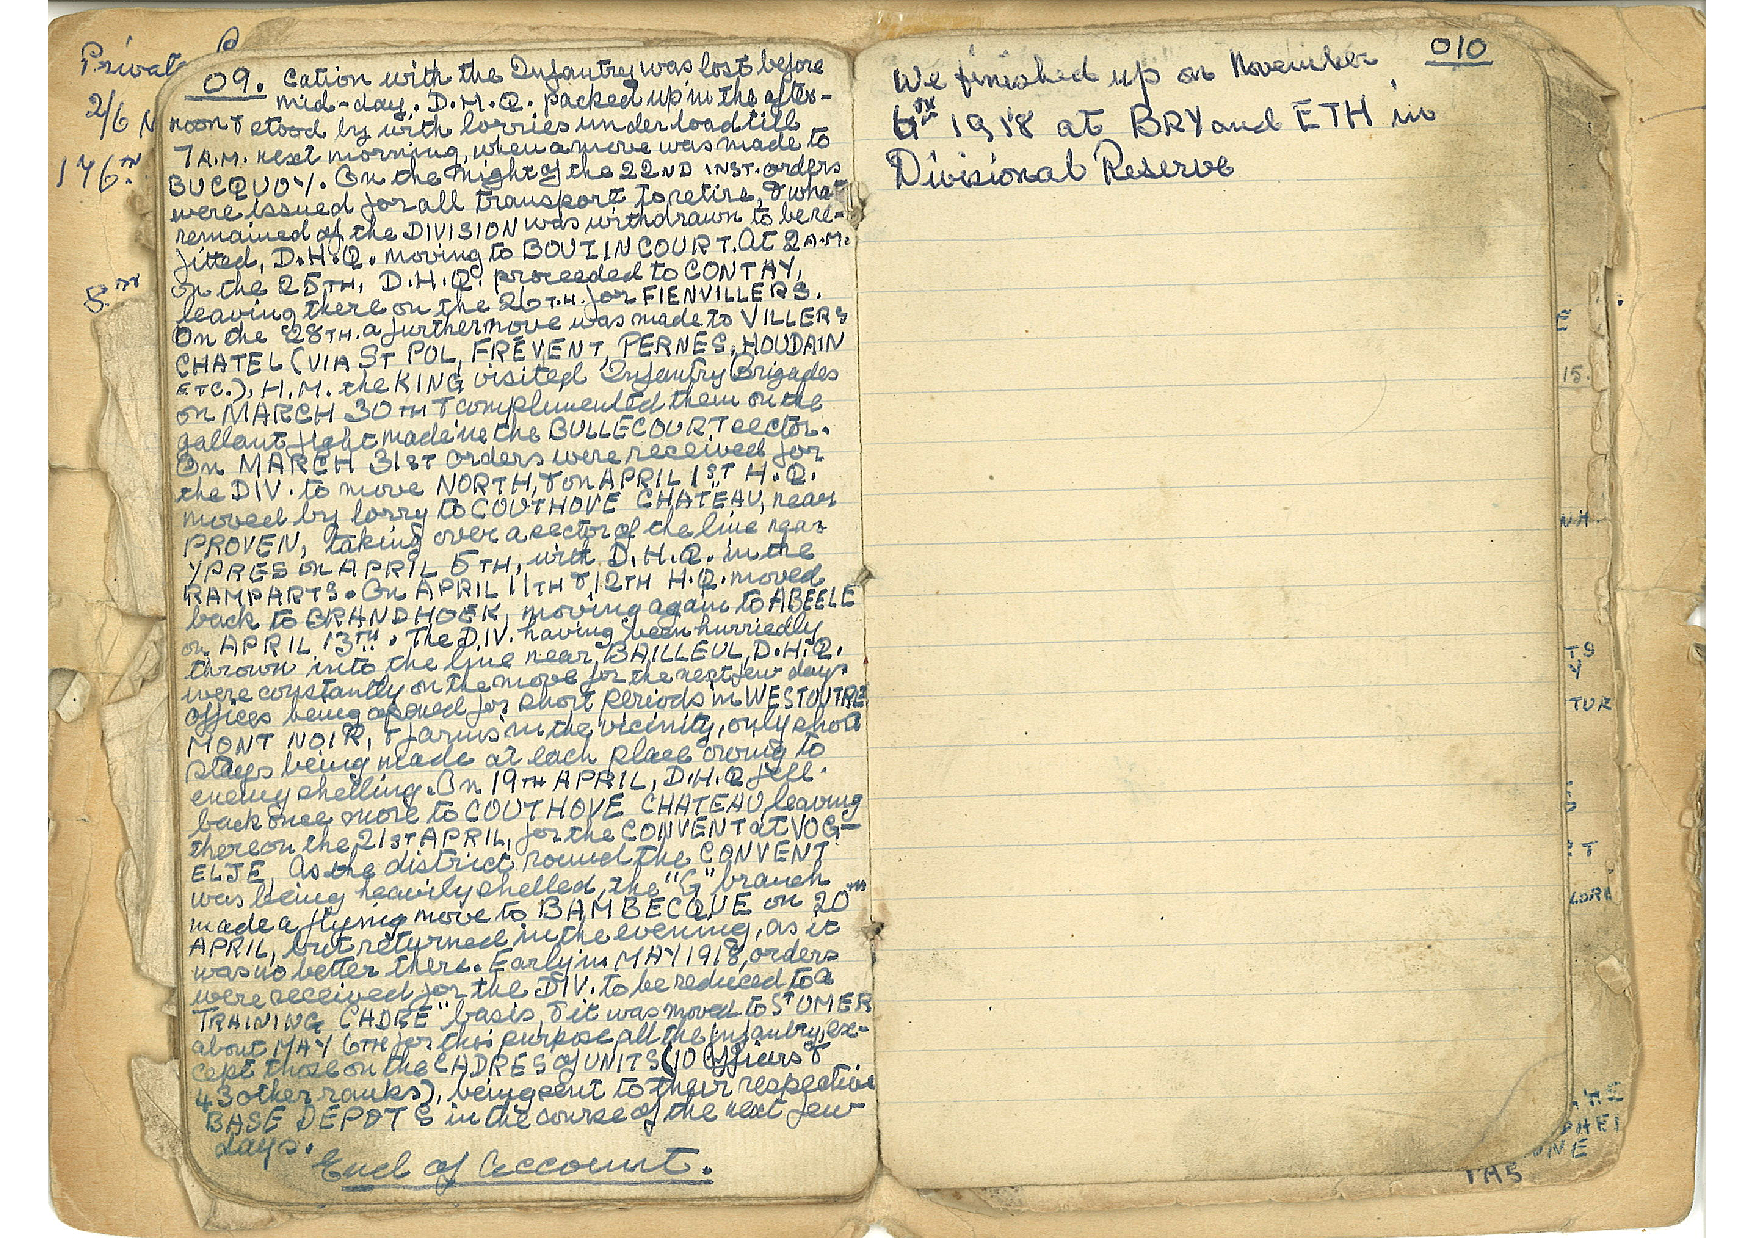 Private
2/6 N
176TH
5TH
09. cation with the Infantry was lost before
mid-day. D.H.Q. packed up in the after-
noon & stood by with lorries under load till
7 A.M. next morning, when a move was made to
BUCQUOY. On the night of the 22ND INST. orders
were issued for all transport to retire, & what
remained of the DIVISION was withdrawn to be re-
fitted, D.H.Q. moving to BOUZINCOURT. At 2 A.M.
on the 25TH, D.H.Q. proceeded to CONTAY,
leaving there on the 26TH. for FIENVILLERS.
On the 28TH. a further move was made to VILLERS
CHATEL (VIA ST POL, FREVENT, PERNES, HOUDAIN
ETC.), H.M. the KING visited Infantry Brigades
on MARCH 30TH & complimented them on the
gallant fight made in the BULLECOURT sector.
On MARCH 31ST orders were received for
the DIV. to move NORTH, & on APRIL 1ST H.Q.
moved by lorry to COUTHOVE CHATEAU, near
PROVEN, taking over a sector of the line near
YPRES on APRIL 5TH, with D.H.Q. in the
RAMPARTS. On APRIL 11TH & 12TH H.Q. moved
back to BRANDHOEK, moving again to ABEELE
on APRIL 13TH. The DIV. having been hurriedly
thrown into the line near BAILLEUL, D.H.Q.
were constantly on the move for the next few days
offices being opened for short periods in WESTOUTRE
MONT NOIR, & farms in the vicinity, only short
stays being made at each place owing to
enemy shelling. On 19TH APRIL, D.H.Q fell
back once more to COUTHOVE CHATEAU, leaving
there on the 21ST APRIL, for the CONVENT at VOG-
ELJE. As the district round the CONVENT
was being heavily shelled, the "G" branch
made a flying move to BAMBECQUE on 20TH
APRIL, but returned in the evening, as it
was no better there. Early in MAY 1918, orders
were received for the DIV. to be reduced to a
TRAINING CADRE" basis, & it was moved to ST OMER
about MAY 6TH for this purpose all the infantry, ex-
cept those on the CADRES of UNITS (10 Officers &
43 other ranks), being sent to their respective
BASE DEPOTS in the course of the next few
days.
End of Account.
010
We finished up on November
6TH 1918 at BRY and ETH in
Divisional Reserve
E
15.
NH
TS
Y
TUR
RT
LORR
THE
PHEI
ONE
THS